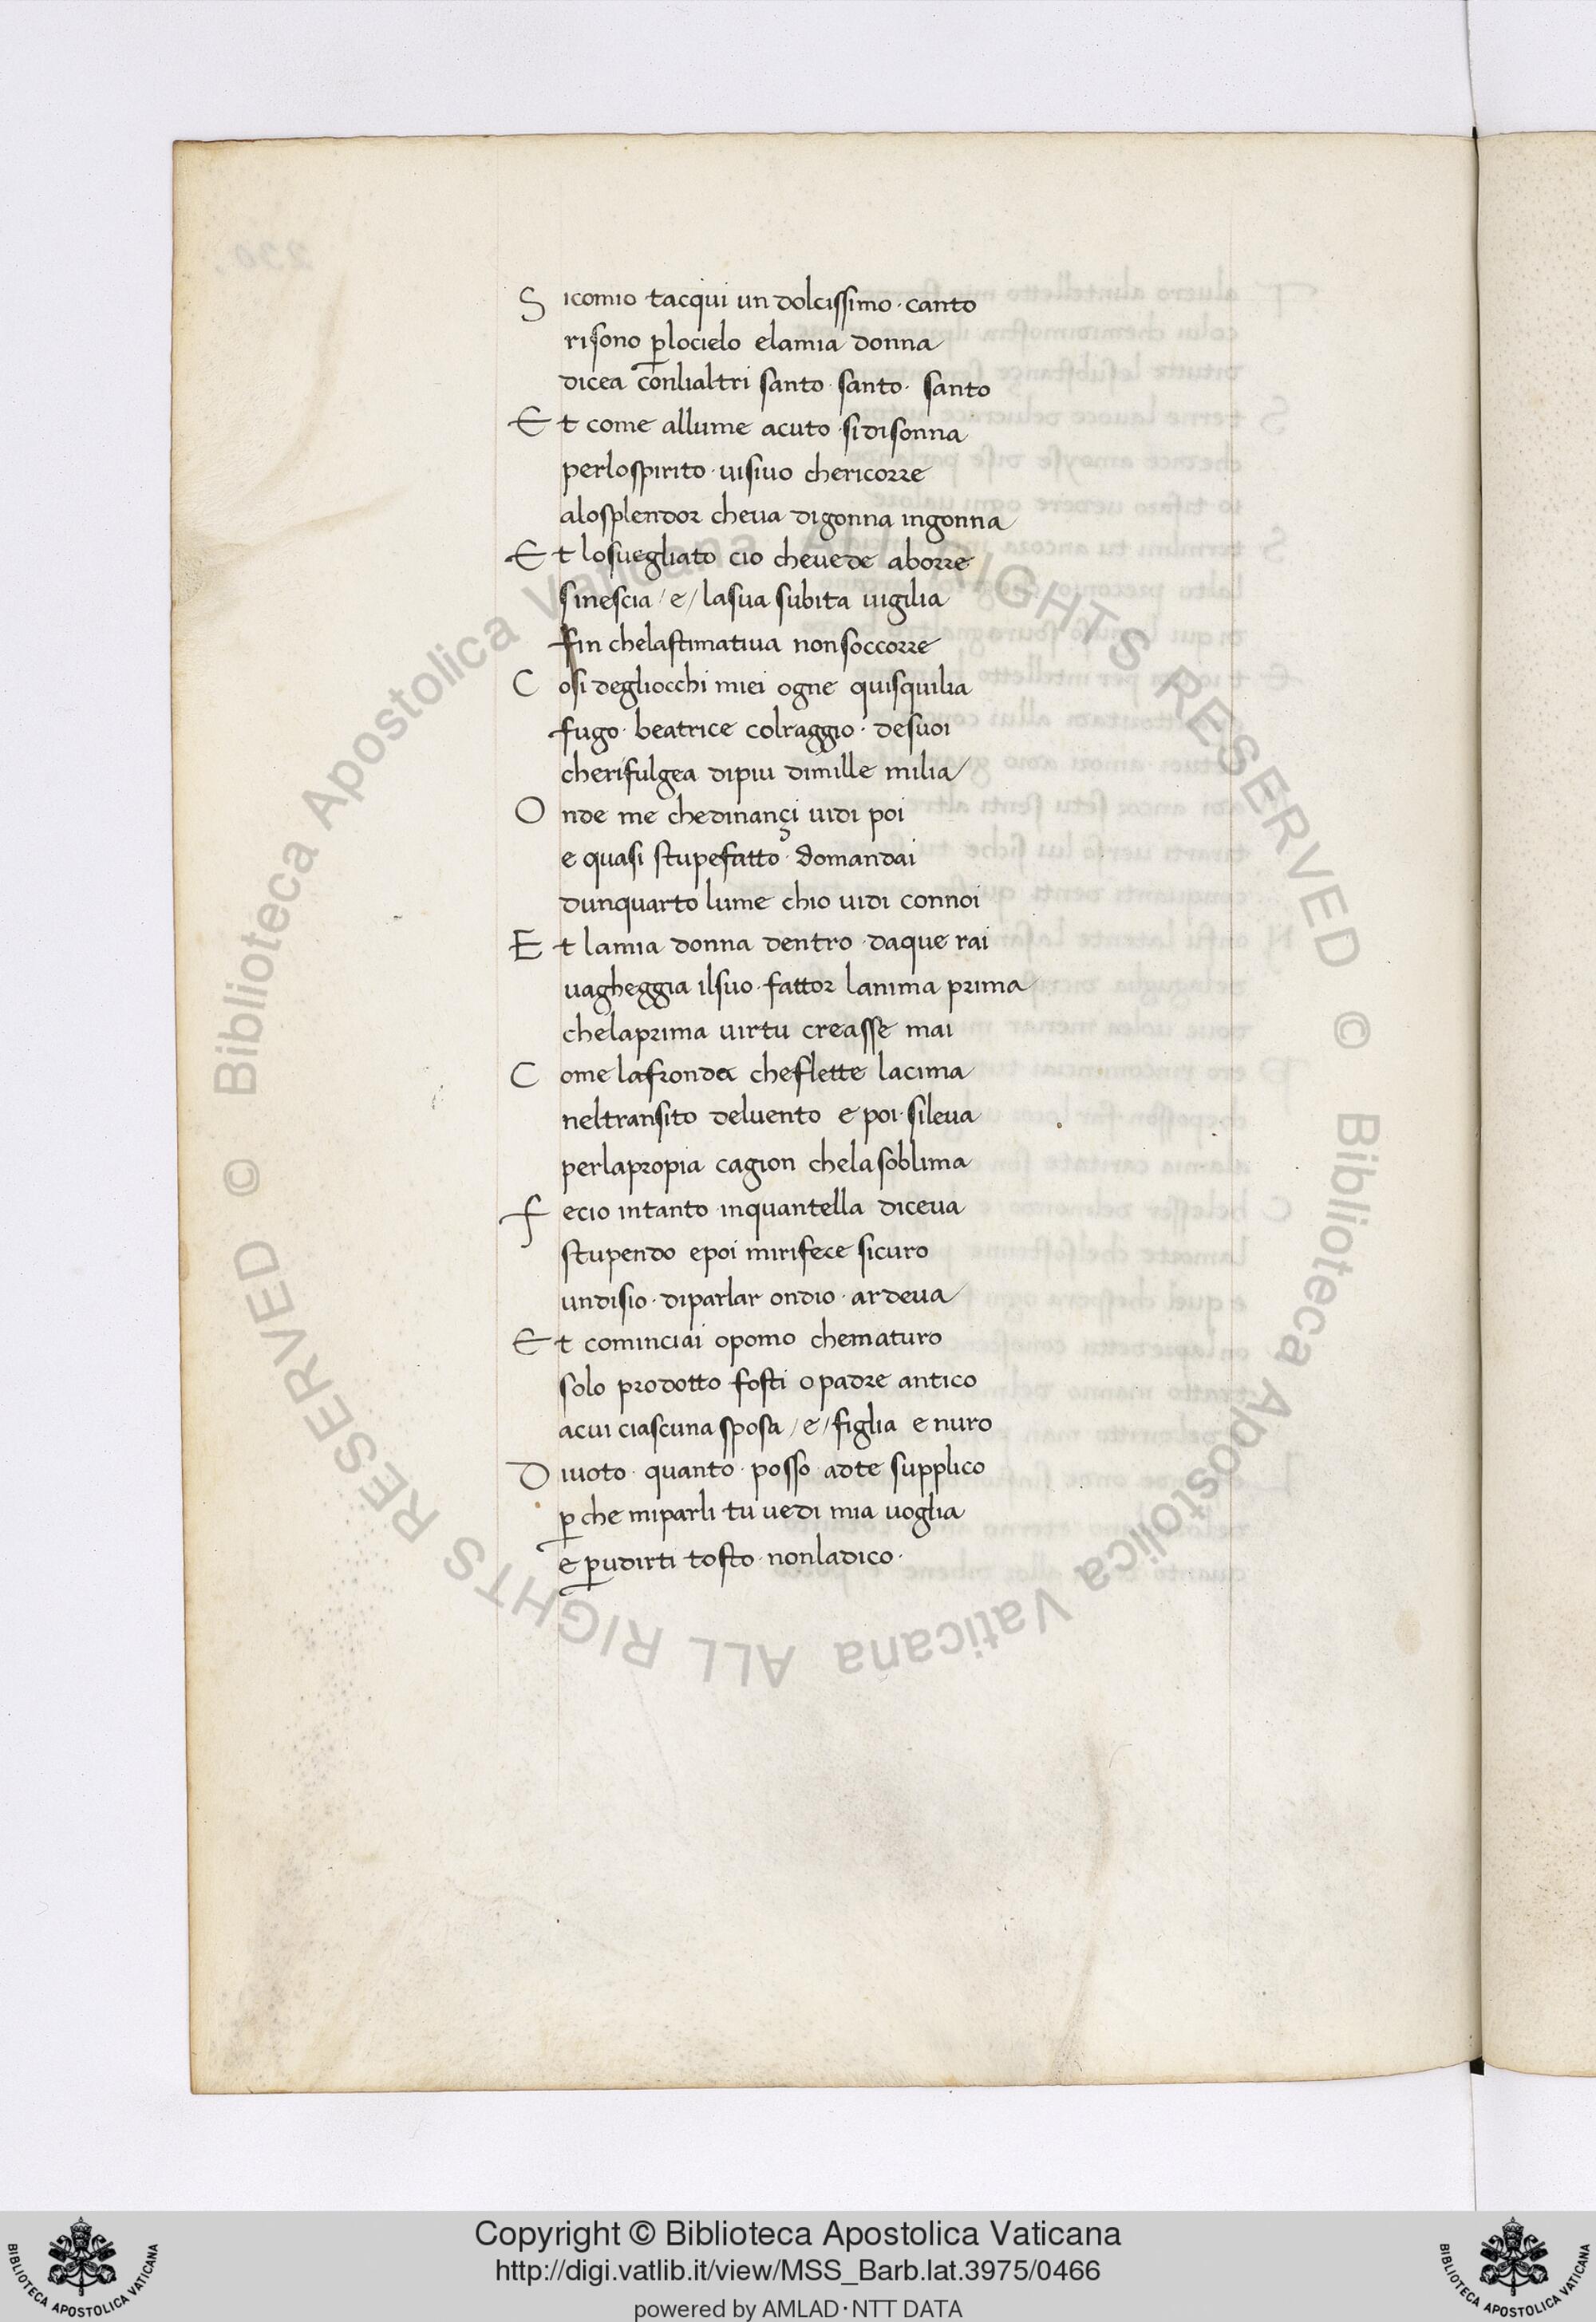 S icomio tacqui un dolcissimo · canto
risono ꝑlocielo elamia donna
dicea cōnlialtri santo · santo · santo
E t come allume acuto · sidisonna
perlospirito · uisiuo chericorre
alosplendor cheua digonna ingonna
E t losuegliato cio cheuede aborre
sinescia / e / lasua subita uigilia
fin chelastimatiua nonsoccorre
C osi degliocchi miei ogne quisquilia
fugo · beatrice colraggio · desuoi
cherifulgea dipiu dimille milia
O nde me chedinançi uidi poi
e quasi stupefatto · domandai
dunquarto lume chio uidi connoi
E t lamia donna dentro · daque rai
uagheggia ilsuo · fattor lanima prima
chelaprima uirtu creasse mai
C ome lafronda cheflette lacima
neltransito deluento e poi · sileua
perlapropia cagion chelasoblima
F ecio intanto · inquantella diceua
stupendo epoi mirifece sicuro
undisio · diparlar ondio · ardeua
E t cominciai opomo chematuro
solo prodotto fosti o padre antico
acui ciascuna sposa / e / figlia e nuro
D iuoto · quanto · posso · adte supplico
ꝑ che miparli tu uedi mia uoglia
e ꝑudirti tosto · nonladico ·
© Biblioteca Apostolica Vaticana ALL RIGHTS RESERVED
© Biblioteca Apostolica Vaticana ALL RIGHTS RESERVED
Copyright © Biblioteca Apostolica Vaticana
http://digi.vatlib.it/view/MSS_Barb.lat.3975/0466
powered by AMLAD·NTT DATA
BIBLIOTECA APOSTOLICA VATICANA
BIBLIOTECA APOSTOLICA VATICANA